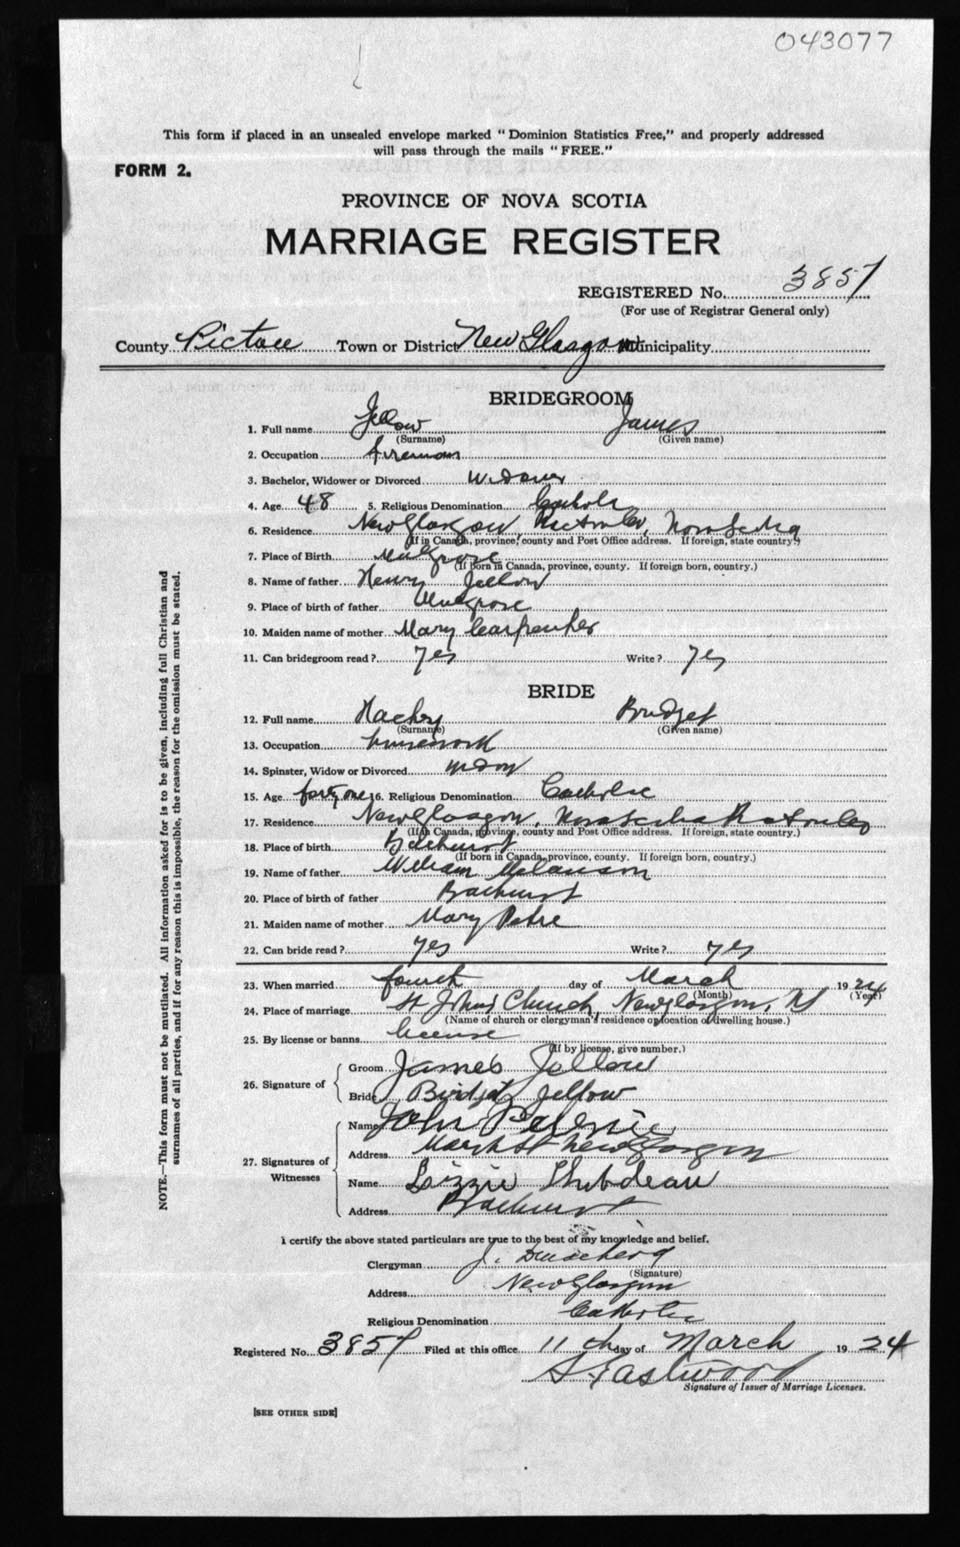 043077
This form if placed in an unsealed envelope marked "Dominion Statistics Free," and properly addressed
will pass through the mails "FREE."
FORM 2.
PROVINCE OF NOVA SCOTIA
MARRIAGE REGISTER
REGISTERED No. 3857
(For use of Registrar General only)
County Pictou Town or District New Glasgow Municipality
BRIDEGROOM
1. Full name Jellow James
(Surname) (Given name)
2. Occupation fireman
3. Bachelor, Widower or Divorced Widower
4. Age 48 5. Religious Denomination Catholic
6. Residence New Glasgow, Pictou Co, Nova Scotia
(If in Canada, province, county and Post Office address. If foreign, state country.)
7. Place of Birth Mulgrave
(If born in Canada, province, county. If foreign born, country.)
8. Name of father Henry Jellow
9. Place of birth of father Mulgrave
10. Maiden name of mother Mary Carpenter
11. Can bridegroom read? yes Write? yes
BRIDE
12. Full name Hachey Bridget
(Surname) (Given name)
13. Occupation housework
14. Spinster, Widow or Divorced widow
15. Age forty one 16. Religious Denomination Catholic
17. Residence New Glasgow, Nova Scotia Pictou Co
(If in Canada, province, county and Post Office address. If foreign, state country.)
18. Place of birth Bathurst
(If born in Canada, province, county. If foreign born, country.)
19. Name of father William Melanson
20. Place of birth of father Bathurst
21. Maiden name of mother Mary
22. Can bride read? yes Write? yes
23. When married fourth day of March 1924
(Month) (Year)
24. Place of marriage St Johns Church, New Glasgow, NS
(Name of church or clergyman's residence or location of dwelling house.)
25. By license or banns license
(If by license, give number.)
26. Signature of Groom James Jellow
Bride Bridget Jellow
27. Signatures of Witnesses Name John
Address Marsh St New Glasgow
Name Lizzie Thibdeau
Address Bathurst
I certify the above stated particulars are true to the best of my knowledge and belief.
Clergyman J.
(Signature)
Address New Glasgow
Religious Denomination Catholic
Registered No. 3857 Filed at this office 11th day of March 1924
S Eastwood
Signature of Issuer of Marriage Licenses.
[SEE OTHER SIDE]
NOTE.—This form must not be mutilated. All information asked for is to be given, including full Christian and
surnames of all parties, and if for any reason this is impossible, the reason for the omission must be stated.